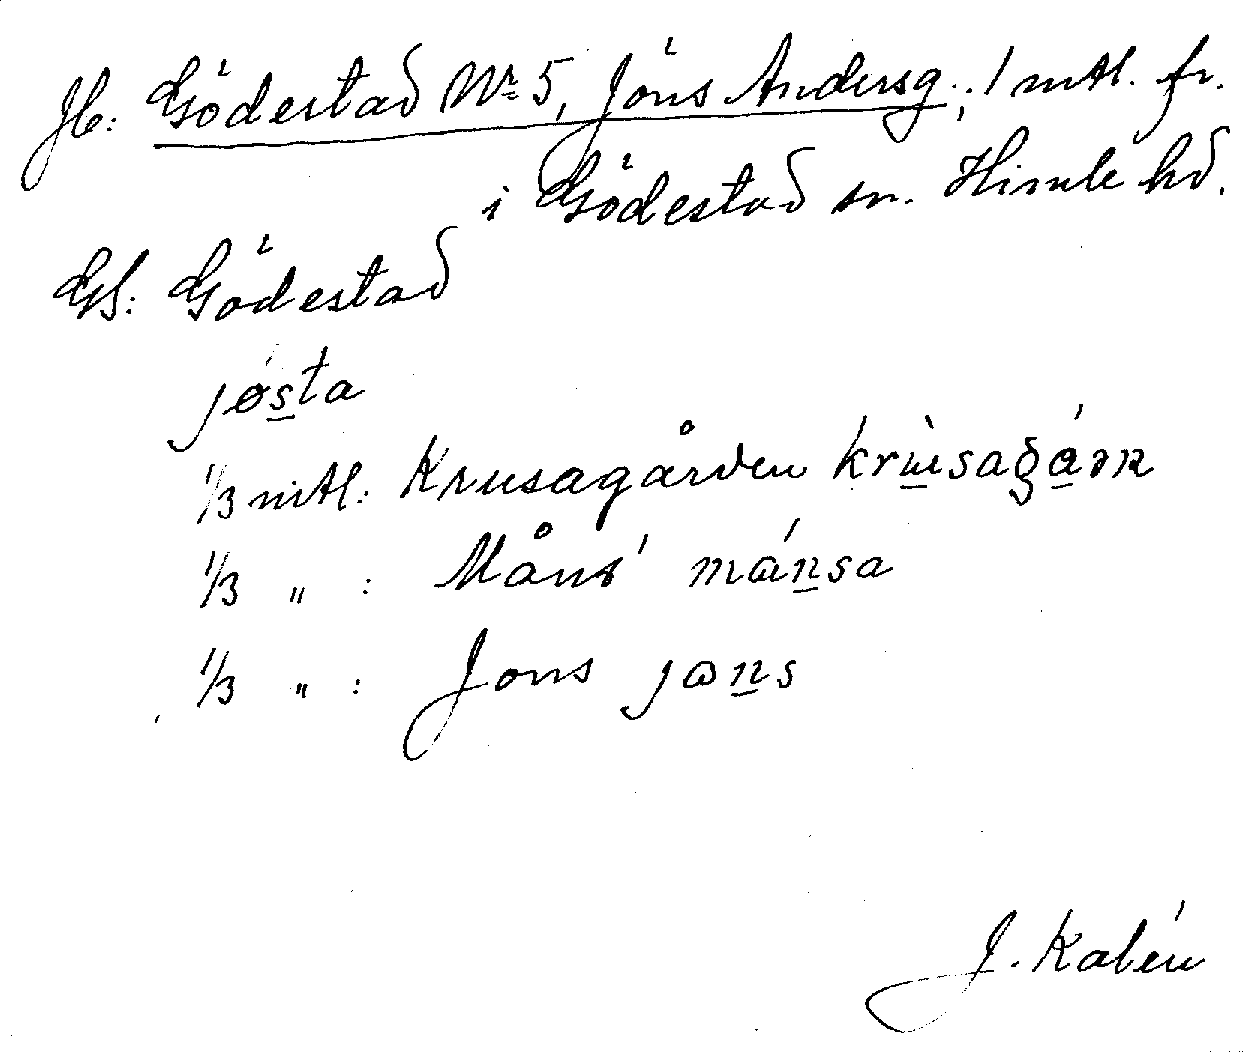 Jb: Gödestad Nr 5, Jöns Andersg.; 1 mtl. fr.
i Gödestad sn. Himle hd.
Gs: Gödestad
jøsta
1/3 mtl: Krusagården
1/3 " : Måns' mánsa
1/3 " : Jons jans
J. Kalén